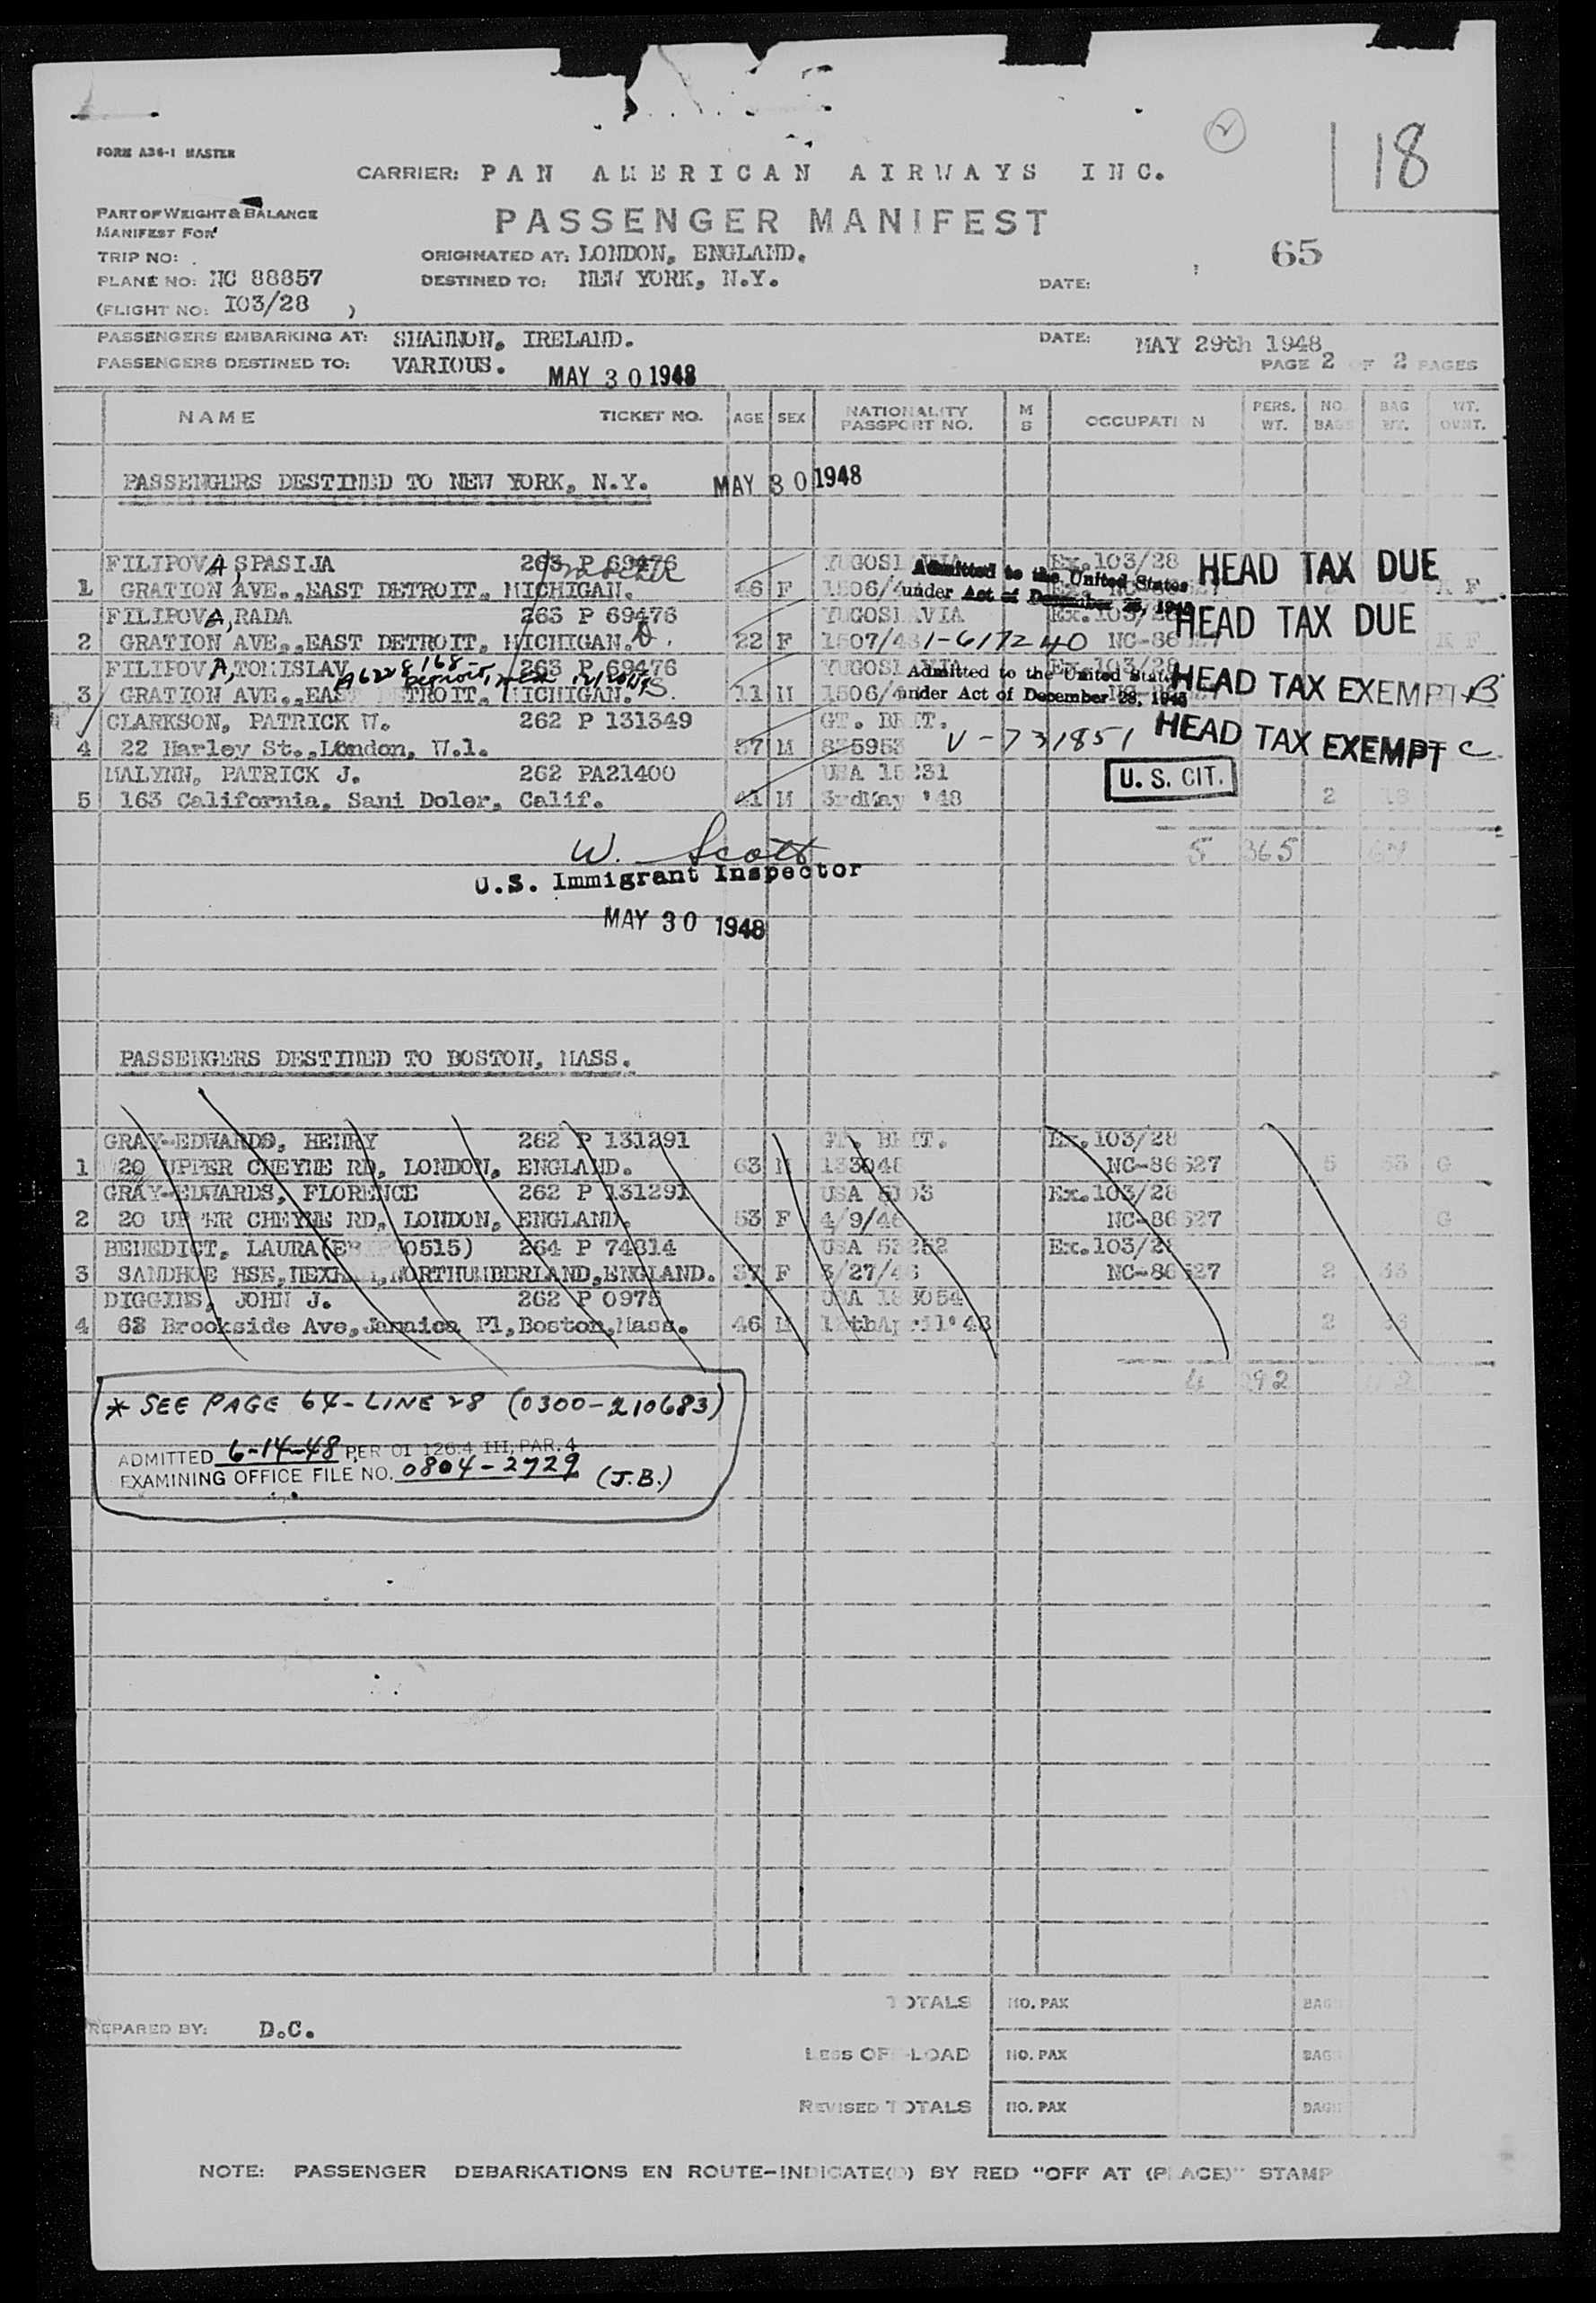 18
FORM A36-1 MASTER
CARRIER: PAN AMERICAN AIRWAYS INC.
PART OF WEIGHT & BALANCE
MANIFEST FOR
PASSENGER MANIFEST
65
TRIP NO:
ORIGINATED AT: LONDON, ENGLAND.
PLANE NO: NC 88857
DESTINED TO: NEW YORK, N.Y.
DATE:
(FLIGHT NO: I03/28 )
PASSENGERS EMBARKING AT: SHANNON, IRELAND.
DATE: MAY 29th 1948
PASSENGERS DESTINED TO: VARIOUS.
MAY 30 1948
PAGE 2 OF 2 PAGES
NAME TICKET NO. AGE SEX NATIONALITY PASSPORT NO. M S OCCUPATI N PERS. WT. NO. BAGS BAG WT. WT. OVNT.
PASSENGERS DESTINED TO NEW YORK, N.Y. MAY 30 1948
FILIPOVA, SPASIJA 263 P 69476 YUGOSLAVIA Ex.103/28 HEAD TAX DUE
1 GRATION AVE.,EAST DETROIT, MICHIGAN. 46 F 1506/4 K F
Admitted to the United States
under Act of December 28, 1945
FILIPOVA, RADA 263 P 69476 YUGOSLAVIA Ex.103/28 HEAD TAX DUE
2 GRATION AVE.,EAST DETROIT, MICHIGAN. 22 F 1507/48 1-617240 NC-86 K F
FILIPOVA, TOMISLAV 263 P 69476 YUGOSLAVIA Ex.103/28 HEAD TAX EXEMPT B
3 GRATION AVE.,EAST DETROIT, MICHIGAN. 11 M 1506/4
Admitted to the United States
under Act of December 28, 1945
CLARKSON, PATRICK W. 262 P 131349 GT. BRIT. HEAD TAX EXEMPT C
4 22 Harley St.,London, W.1. 37 M V-731851
MALYNN, PATRICK J. 262 PA21400 USA U. S. CIT.
5 163 California, Sani Doler, Calif. 41 M 3rdMay '48 2 18
5 365
W. Scott
U.S. Immigrant Inspector
MAY 30 1948
PASSENGERS DESTINED TO BOSTON, MASS.
GRAY-EDWARDS, HENRY 262 P 131291 GT. BRIT. Ex.103/28
1 20 UPPER CHEYNE RD, LONDON, ENGLAND. 63 M NC-86527 5 G
GRAY-EDWARDS, FLORENCE 262 P 131291 USA Ex.103/28
2 20 UPPER CHEYNE RD, LONDON, ENGLAND. 53 F NC-86527 G
BENEDICT, LAURA 264 P 74814 USA Ex.103/28
3 SANDHOE HSE,HEXHAM,NORTHUMBERLAND,ENGLAND. 37 F NC-86527 2
DIGGINS, JOHN J. 262 P 0975 USA
4 68 Brookside Ave,Jamaica Pl,Boston,Mass. 46 M 2
* SEE PAGE 64-LINE 28 (0300-210683)
ADMITTED 6-14-48 PER OI 126.4 III, PAR. 4
EXAMINING OFFICE FILE NO. 0804-2729 (J.B.)
TOTALS NO. PAX BAGS
PREPARED BY: D.C.
LESS OFF-LOAD NO. PAX BAGS
REVISED TOTALS NO. PAX BAGS
NOTE: PASSENGER DEBARKATIONS EN ROUTE-INDICATE(D) BY RED "OFF AT (PLACE)" STAMP